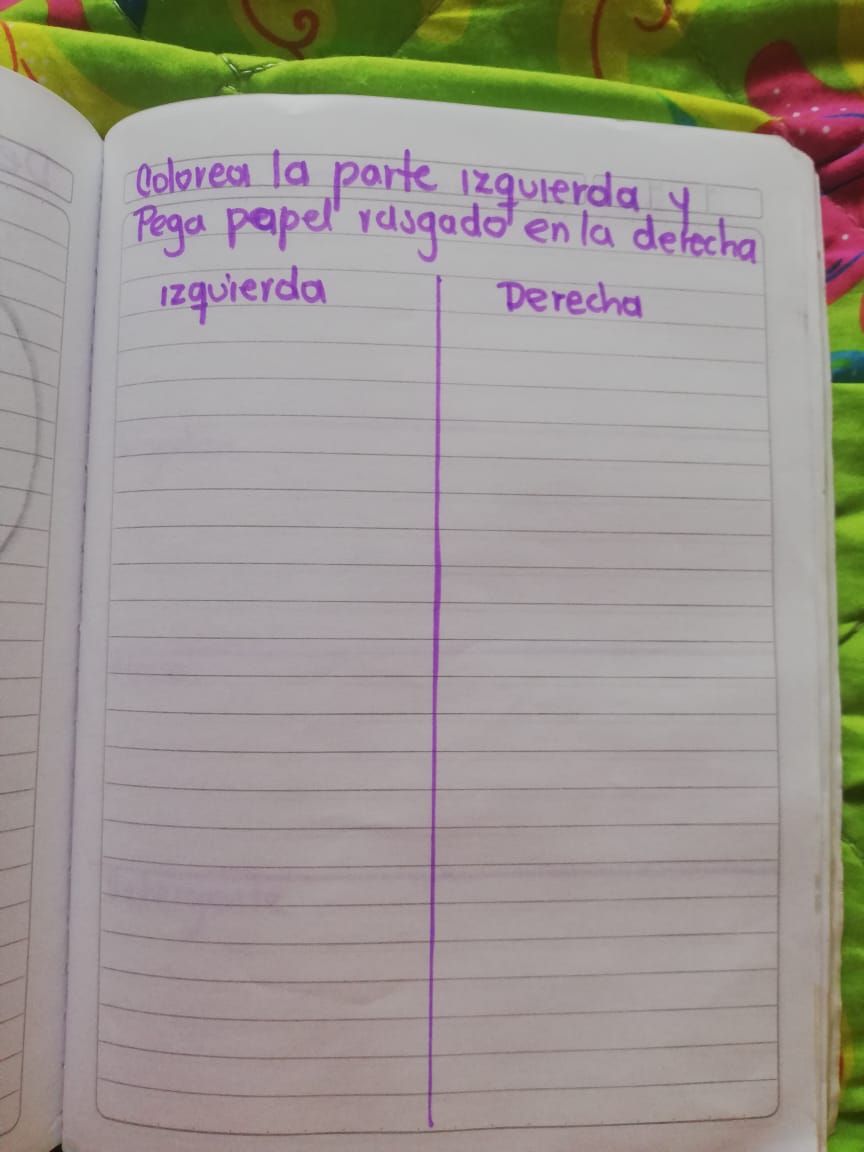 Colorea la parte izquierda y
Pega papel rasgado en la derecha
izquierda Derecha